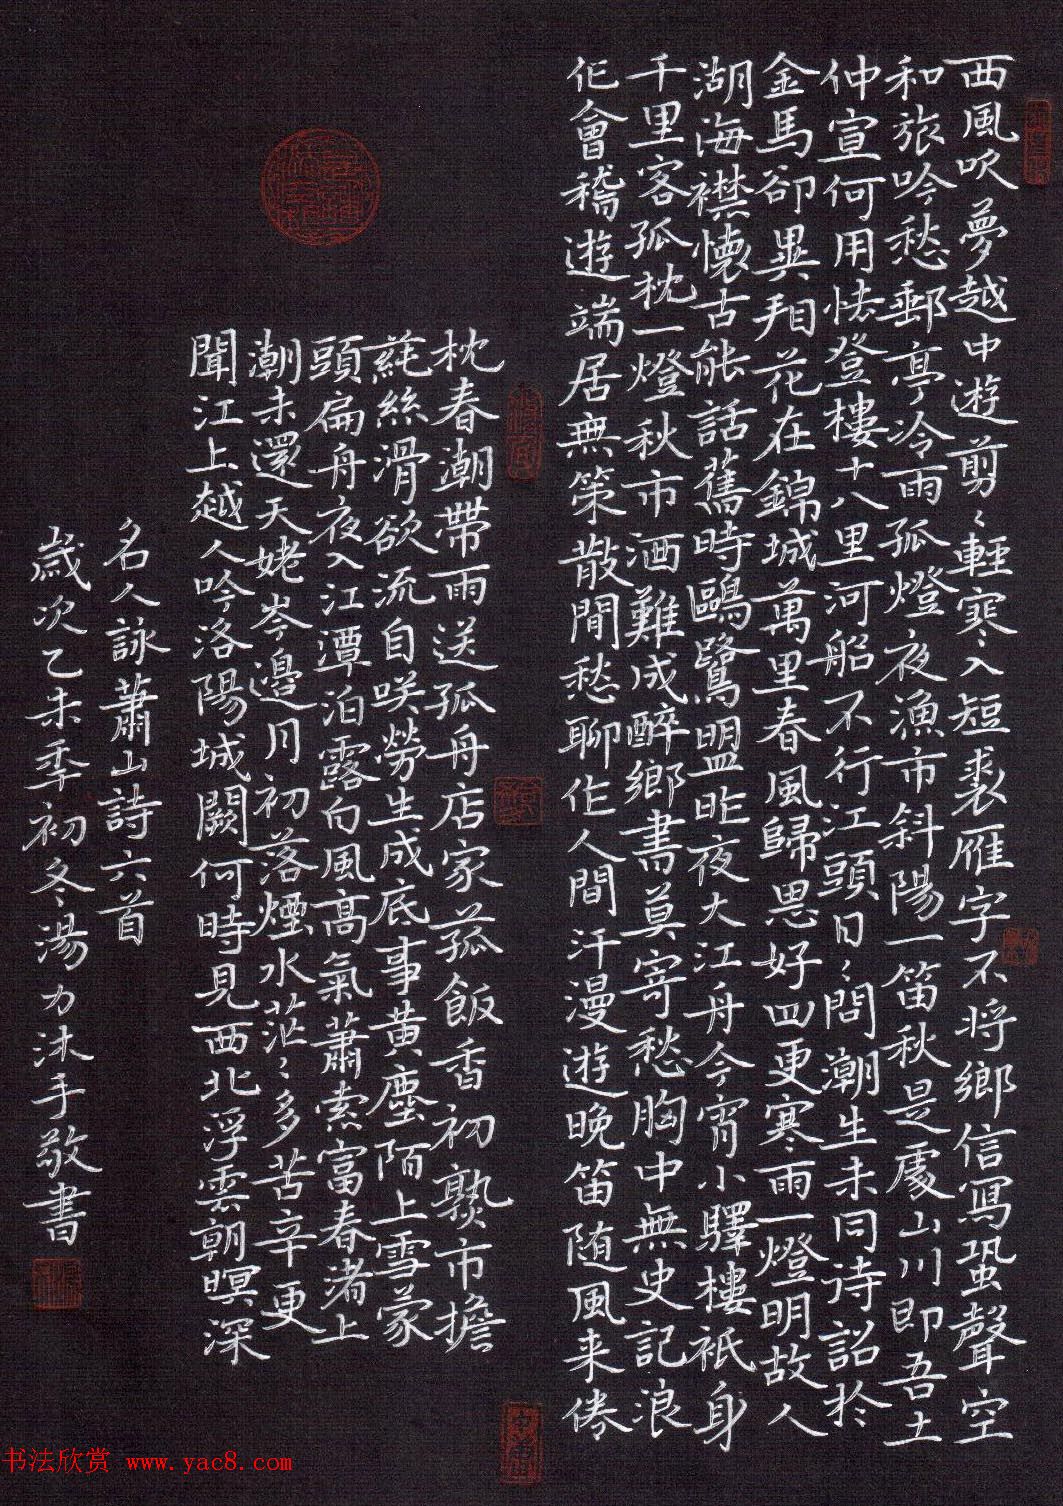 西風吹夢越中遊剪〻輕寒入短裘雁字不將鄉信寫蛩聲空
和旅吟愁郵亭冷雨孤燈夜漁市斜陽一笛秋是處山川即吾土
仲宣何用怯登樓十八里河船不行江頭日〻問潮生未同詩詔於
金馬卻異羚花在錦城萬里春風歸思好四更寒雨一燈明故人
湖海襟懷古能話舊時鷗鷺盟昨夜大江舟今宵小驛樓衹身
千里客孤枕一燈秋市酒難成醉鄉書莫寄愁胸中無史記浪
作會稽遊端居無策散閒愁聊作人間汗漫遊晚笛隨風来倦
枕春潮帶雨送孤舟店家菰飯香初熟市擔
蓴絲滑欲流自咲勞生成底事黃塵陌上雪蒙
頭扁舟夜入江潭泊露白風高氣蕭索富春渚上
潮未還天姥岑邊月初落煙水茫〻多苦辛更
聞江上越人吟洛陽城闕何時見西北浮雲朝暝深
名人詠蕭山詩六首
歲次乙未季初冬湯力沐手敬書
书法欣赏 www.yac8.com